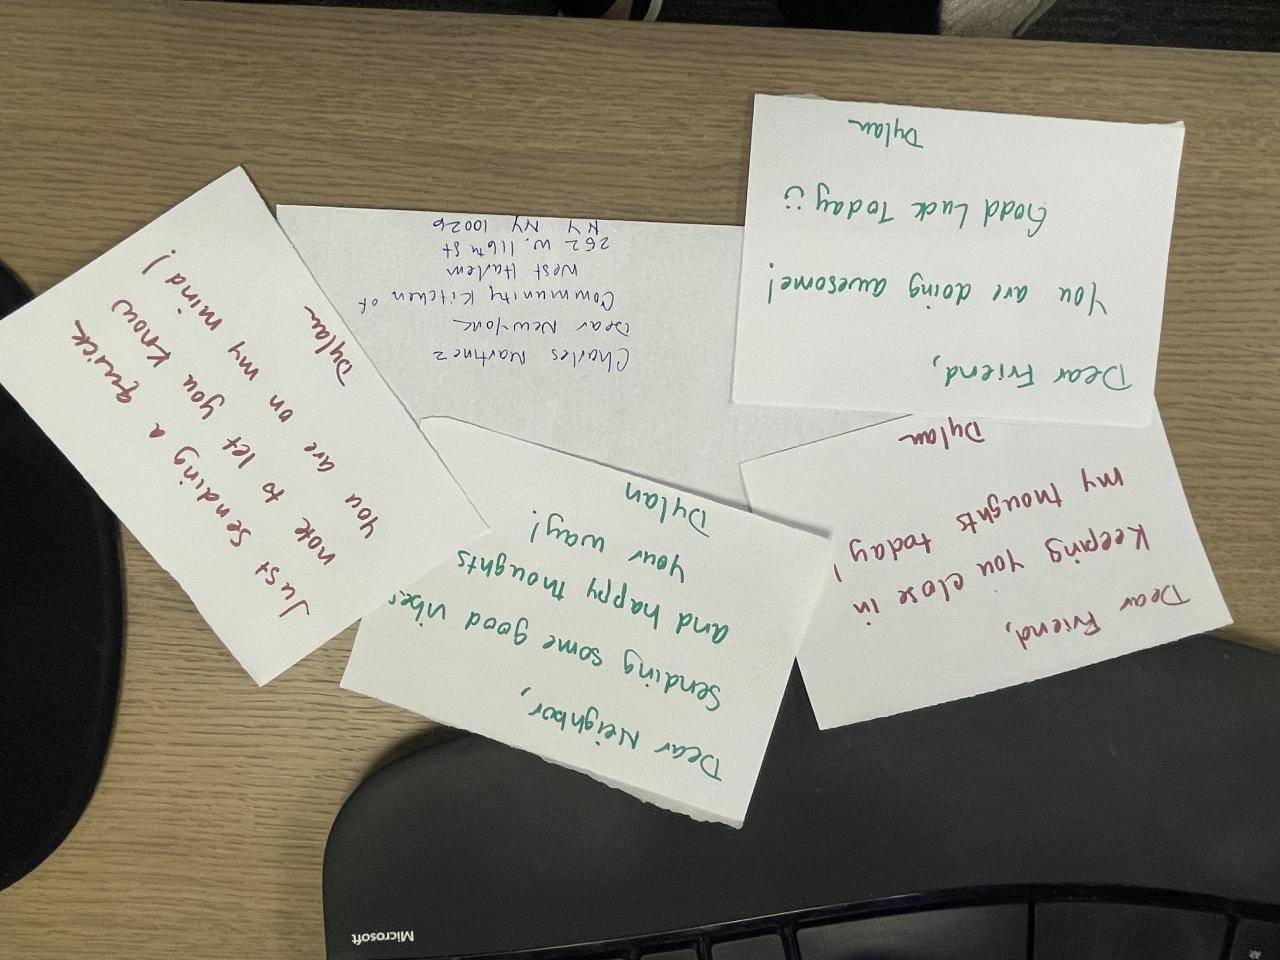 Dear Friend,
You are doing awesome!
Good Luck Today
Dylan
Dear Friend,
Keeping you close in
my thoughts today!
Dylan
Dear Neighbor,
Sending some good vibes
and happy thoughts
your way!
Dylan
Charles Martinez
Dear New York
Community Kitchen of
West Harlem
262 W. 116th St
NY NY 10026
Just sending a quick
note to let you know
you are on my mind!
Dylan
Microsoft